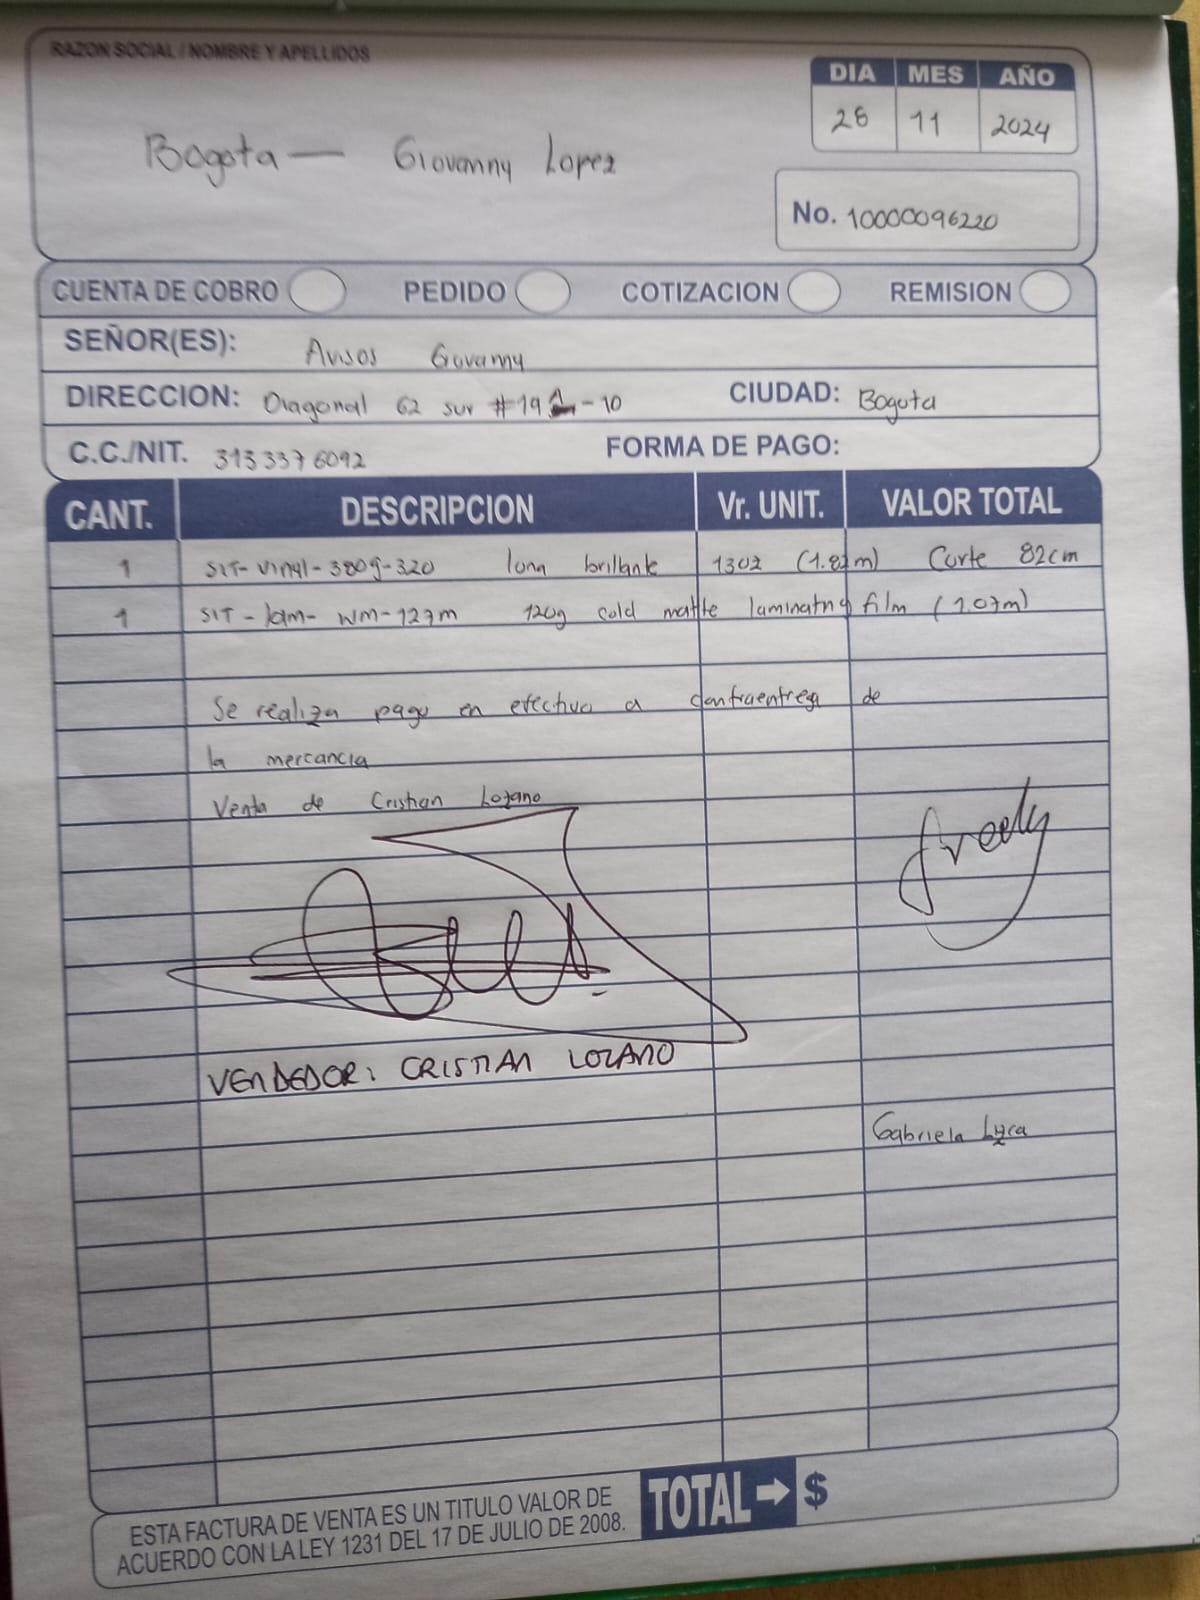 RAZON SOCIAL / NOMBRE Y APELLIDOS
DIA MES AÑO
28 11 2024
Bogota — Giovanny Lopez
No. 10000096220
CUENTA DE COBRO PEDIDO COTIZACION REMISION
SEÑOR(ES): Avisos Govanny
DIRECCION: Diagonal 62 sur #19 -10 CIUDAD: Bogota
C.C./NIT. 3133376092 FORMA DE PAGO:
CANT. DESCRIPCION Vr. UNIT. VALOR TOTAL
1 SIT-Vinyl-380g-320 lona brillante 1302 (1.82m) Corte 82cm
1 SIT-lam-WM-127m 120g cold matte laminatng film (1.07m)
Se realiza pago en efectivo a contraentrega de
la mercancia
Venta de Cristian Lozano
fredy
VENDEDOR: CRISTIAN LOZANO
Gabriela
TOTAL → $
ESTA FACTURA DE VENTA ES UN TITULO VALOR DE
ACUERDO CON LA LEY 1231 DEL 17 DE JULIO DE 2008.